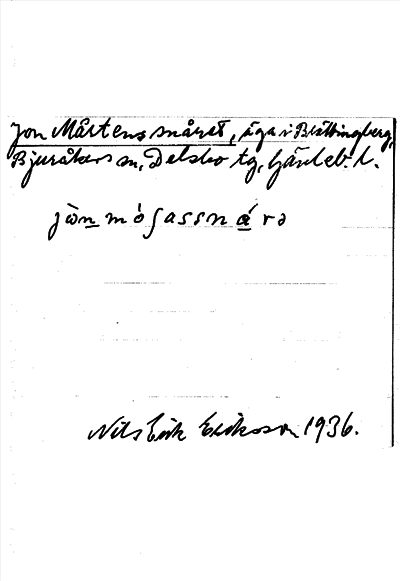 Jon Mårtens snåret, äga i Brättingberg,
Bjuråkers sn, Delsbo tg, Gävleb. l.
jòn mó∫assnárə
Nils Erik Eriksson 1936.